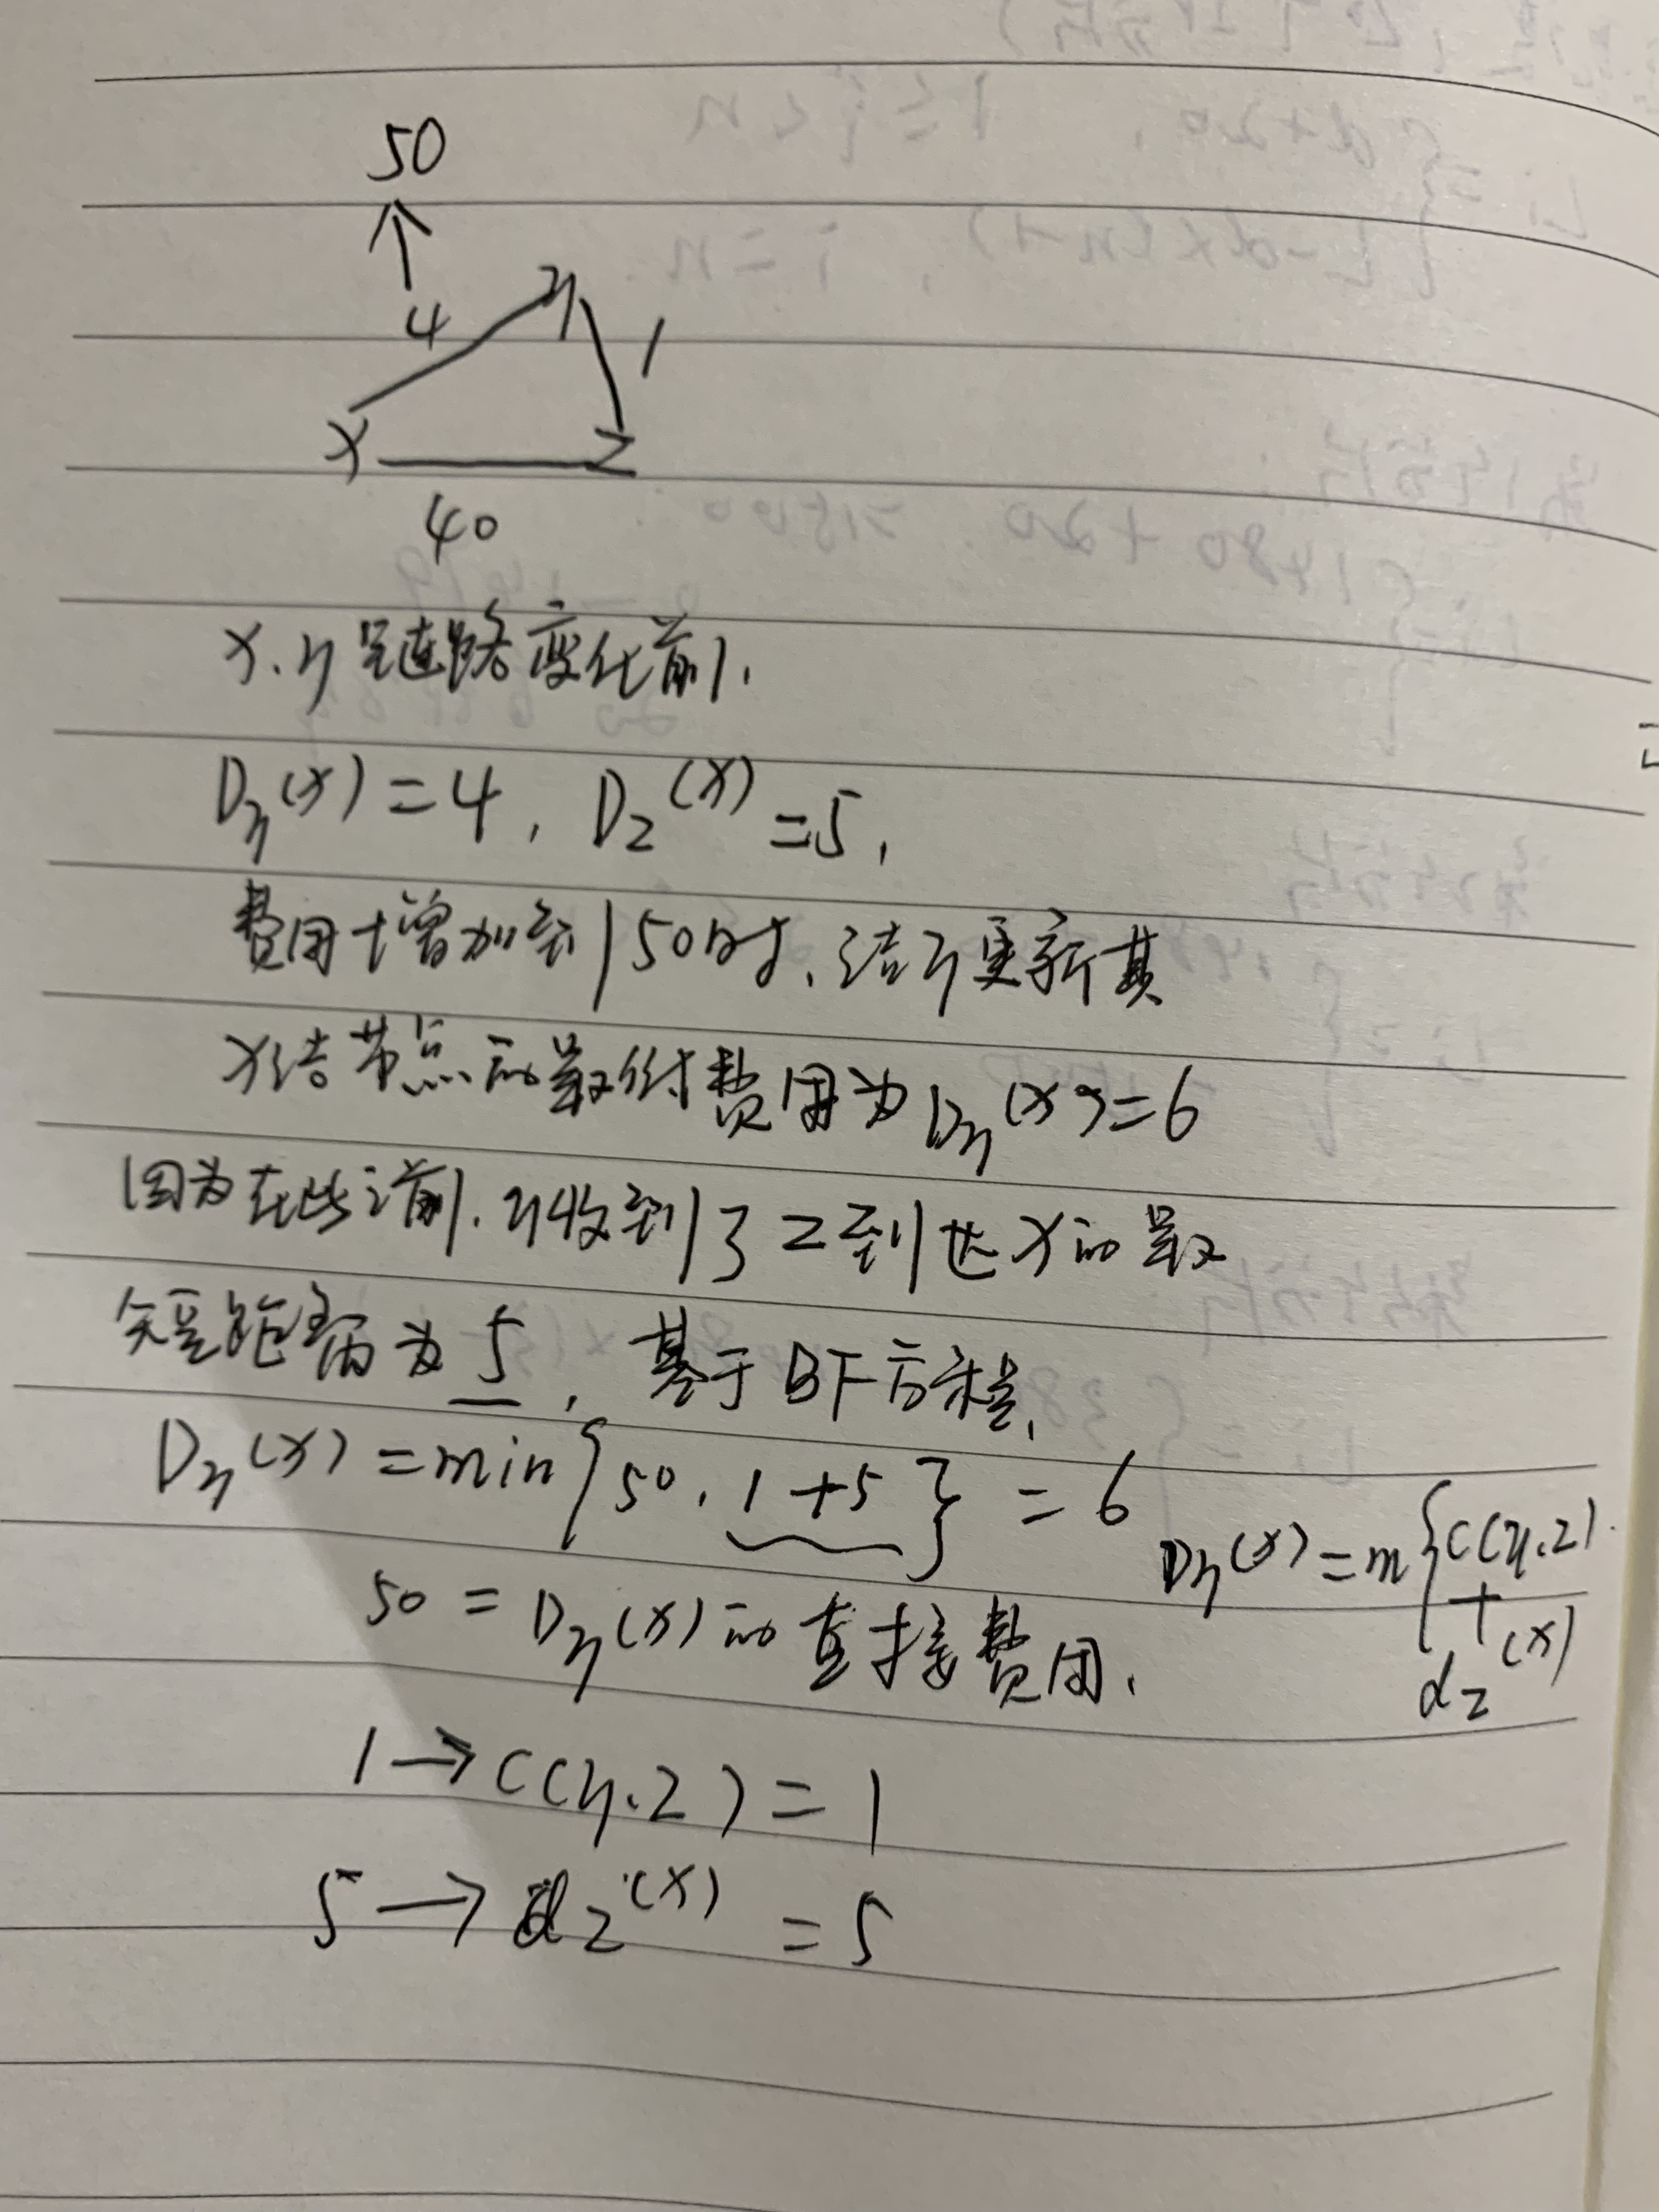 50
4
y
1
x
z
40
x.y 链路变化前,
Dy(x)=4, Dz(x)=5,
费用 增加到50时,结y更新其
x结节点的最终费用为Dy(x)=6
因为在此之前,y收到了z到达x的最
短距离为5,基于BF方程,
Dy(x)=min{50, 1+5}=6
Dy(x)=m{c(y.z)
+
dz(x)
50=Dy(x)的直接费用,
1→c(y.z)=1
5→dz(x)=5